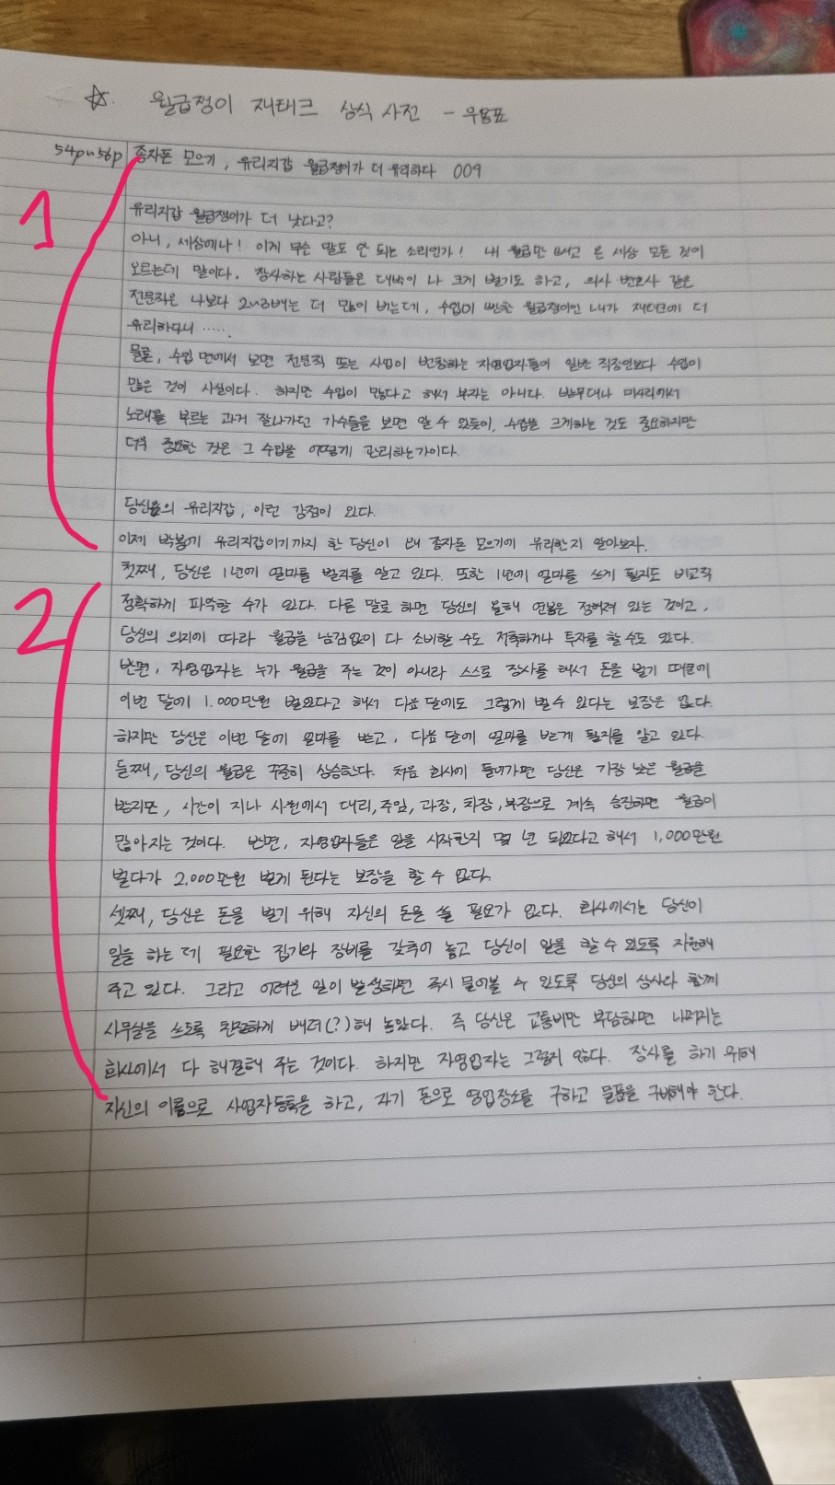 ☆. 월급쟁이 재테크 상식 사전 - 우용표
54p~56p 종자돈 모으기, 유리지갑 월급쟁이가 더 유리하다 009
1
유리지갑 월급쟁이가 더 낫다고?
아니, 세상에나! 이게 무슨 말도 안 되는 소리인가! 내 월급만 빼고 온 세상 모든 것이
오르는데 말이다. 장사하는 사람들은 대박이 나 크게 벌기도 하고, 의사 변호사 같은
전문직은 나보다 2~3배는 더 많이 버는데, 수입이 뻔한 월급쟁이인 내가 재테크에 더
유리하다니 ......
물론, 수입 면에서 보면 전문직 또는 사업이 번창하는 자영업자들이 일반 직장인보다 수입이
많은 것이 사실이다. 하지만 수입이 많다고 해서 부자는 아니다. 밤무대나 미사리에서
노래를 부르는 과거 잘나가던 가수들을 보면 알 수 있듯이, 수입을 크게하는 것도 중요하지만
더욱 중요한 것은 그 수입을 어떻게 관리하는가이다.
당신의 유리지갑, 이런 강점이 있다.
이제 박봉에 유리지갑이기까지 한 당신이 왜 종자돈 모으기에 유리한지 알아보자.
2
첫째, 당신은 1년에 얼마를 벌지를 알고 있다. 또한 1년에 얼마를 쓰게 될지도 비교적
정확하게 파악할 수가 있다. 다른 말로 하면 당신의 올해 연봉은 정해져 있는 것이고,
당신의 의지에 따라 월급을 남김없이 다 소비할 수도 저축하거나 투자를 할 수도 있다.
반면, 자영업자는 누가 월급을 주는 것이 아니라 스스로 장사를 해서 돈을 벌기 때문에
이번 달에 1.000만원 벌었다고 해서 다음 달에도 그렇게 벌 수 있다는 보장은 없다.
하지만 당신은 이번 달에 얼마를 받고, 다음 달에 얼마를 받게 될지를 알고 있다.
둘째, 당신의 월급은 꾸준히 상승한다. 처음 회사에 들어가면 당신은 가장 낮은 월급을
받지만, 시간이 지나 사원에서 대리, 주임, 과장, 차장, 부장으로 계속 승진하면 월급이
많아지는 것이다. 반면, 자영업자들은 일을 시작한지 몇 년 되었다고 해서 1,000만원
벌다가 2,000만원 벌게 된다는 보장을 할 수 없다.
셋째, 당신은 돈을 벌기 위해 자신의 돈을 쓸 필요가 없다. 회사에서는 당신이
일을 하는 데 필요한 집기와 장비를 갖추어 놓고 당신이 일을 할 수 있도록 지원해
주고 있다. 그리고 어려운 일이 발생하면 즉시 물어볼 수 있도록 당신의 상사와 함께
사무실을 쓰도록 친절하게 배려(?)해 놓았다. 즉 당신은 교통비만 부담하면 나머지는
회사에서 다 해결해 주는 것이다. 하지만 자영업자는 그렇지 않다. 장사를 하기 위해
자신의 이름으로 사업자등록을 하고, 자기 돈으로 영업장소를 구하고 물품을 구비해야 한다.